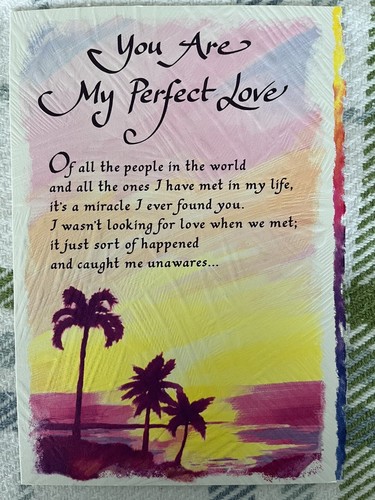 You Are
My Perfect Love
Of all the people in the world
and all the ones I have met in my life,
it's a miracle I ever found you.
I wasn't looking for love when we met;
it just sort of happened
and caught me unawares...